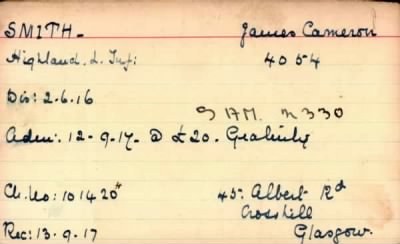 SMITH- James Cameron
Highland. L. Inf: 4054
Dis: 2.6.16
n 330
Adm: 12-9-17- @ £20. Gratuity
Ch. No: 101420 45. Albert Rd
Crosshill
Rec: 13.9.17 Glasgow.